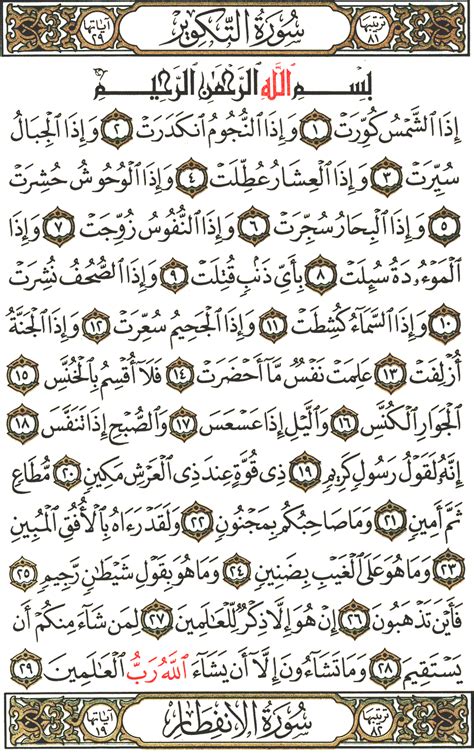 ترتيبها ٨١ سُورَةُ التَّكْوِيرِ آياتها ٢٩
بِسْمِ ٱللَّهِ ٱلرَّحْمَٰنِ ٱلرَّحِيمِ
إِذَا ٱلشَّمْسُ كُوِّرَتْ ١ وَإِذَا ٱلنُّجُومُ ٱنكَدَرَتْ ٢ وَإِذَا ٱلْجِبَالُ
سُيِّرَتْ ٣ وَإِذَا ٱلْعِشَارُ عُطِّلَتْ ٤ وَإِذَا ٱلْوُحُوشُ حُشِرَتْ
٥ وَإِذَا ٱلْبِحَارُ سُجِّرَتْ ٦ وَإِذَا ٱلنُّفُوسُ زُوِّجَتْ ٧ وَإِذَا
ٱلْمَوْءُۥدَةُ سُئِلَتْ ٨ بِأَيِّ ذَنۢبٍ قُتِلَتْ ٩ وَإِذَا ٱلصُّحُفُ نُشِرَتْ
١٠ وَإِذَا ٱلسَّمَآءُ كُشِطَتْ ١١ وَإِذَا ٱلْجَحِيمُ سُعِّرَتْ ١٢ وَإِذَا ٱلْجَنَّةُ
أُزْلِفَتْ ١٣ عَلِمَتْ نَفْسٌ مَّآ أَحْضَرَتْ ١٤ فَلَآ أُقْسِمُ بِٱلْخُنَّسِ ١٥
ٱلْجَوَارِ ٱلْكُنَّسِ ١٦ وَٱلَّيْلِ إِذَا عَسْعَسَ ١٧ وَٱلصُّبْحِ إِذَا تَنَفَّسَ ١٨
إِنَّهُۥ لَقَوْلُ رَسُولٍ كَرِيمٍ ١٩ ذِى قُوَّةٍ عِندَ ذِى ٱلْعَرْشِ مَكِينٍ ٢٠ مُّطَاعٍ
ثَمَّ أَمِينٍ ٢١ وَمَا صَاحِبُكُم بِمَجْنُونٍ ٢٢ وَلَقَدْ رَءَاهُ بِٱلْأُفُقِ ٱلْمُبِينِ
٢٣ وَمَا هُوَ عَلَى ٱلْغَيْبِ بِضَنِينٍ ٢٤ وَمَا هُوَ بِقَوْلِ شَيْطَٰنٍ رَّجِيمٍ ٢٥
فَأَيْنَ تَذْهَبُونَ ٢٦ إِنْ هُوَ إِلَّا ذِكْرٌ لِّلْعَٰلَمِينَ ٢٧ لِمَن شَآءَ مِنكُمْ أَن
يَسْتَقِيمَ ٢٨ وَمَا تَشَآءُونَ إِلَّآ أَن يَشَآءَ ٱللَّهُ رَبُّ ٱلْعَٰلَمِينَ ٢٩
ترتيبها ٨٢ سُورَةُ الِانفِطَارِ آياتها ١٩